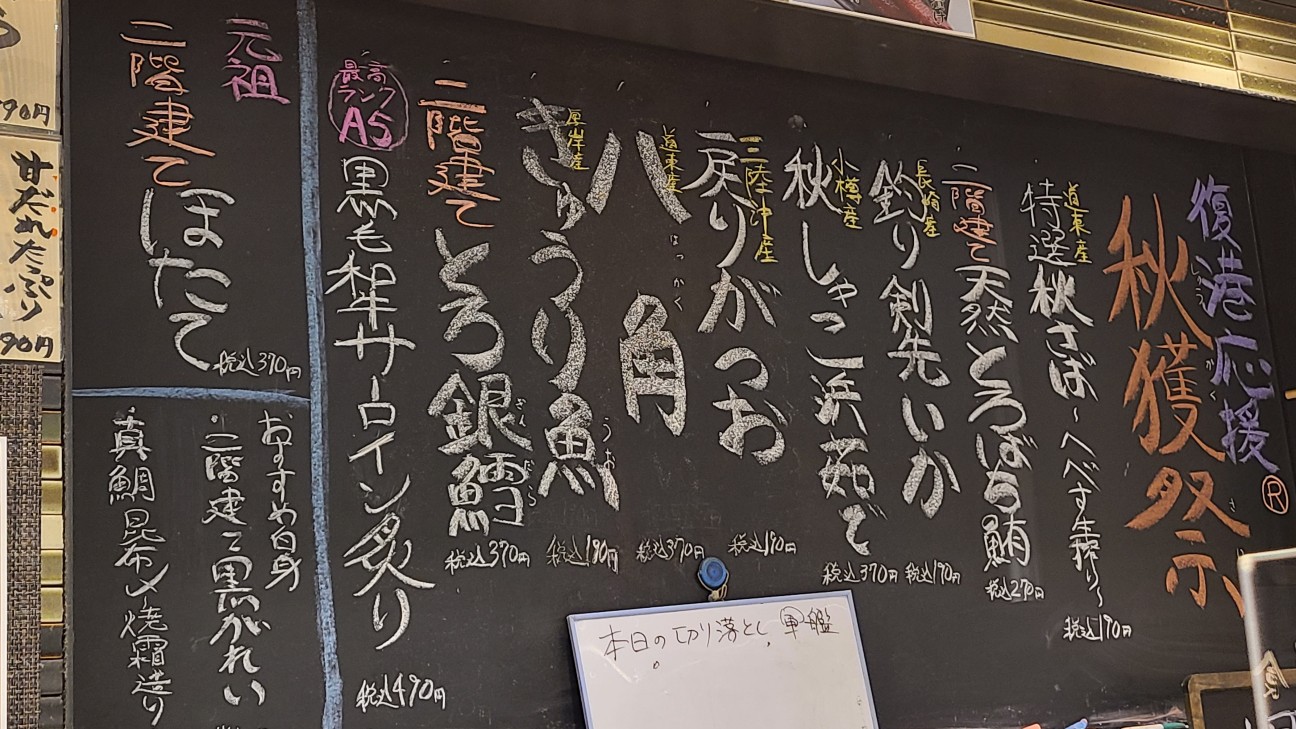 復港応援
秋獲祭
しゅう かく さい
®
道東産
特選秋さば~へべす生搾り~
税込170円
二階建て天然とろばち鮪
税込270円
長崎産
釣り剣先いか
税込190円
小樽産
秋しゃこ浜茹で
税込370円
三陸沖産
戻りがつお
税込190円
道東産
八角
はっかく
税込370円
厚岸産
きゅうり魚
うお
税込190円
二階建てとろ銀鱈
ぎんだら
税込370円
最高
ランク
A5
黒毛和牛サーロイン炙り
税込490円
元祖
二階建てほたて
税込370円
おすすめ白身
二階建て黒がれい
真鯛昆布〆焼霜造り
本日の切り落とし軍艦
90円
甘だれたっぷり
90円